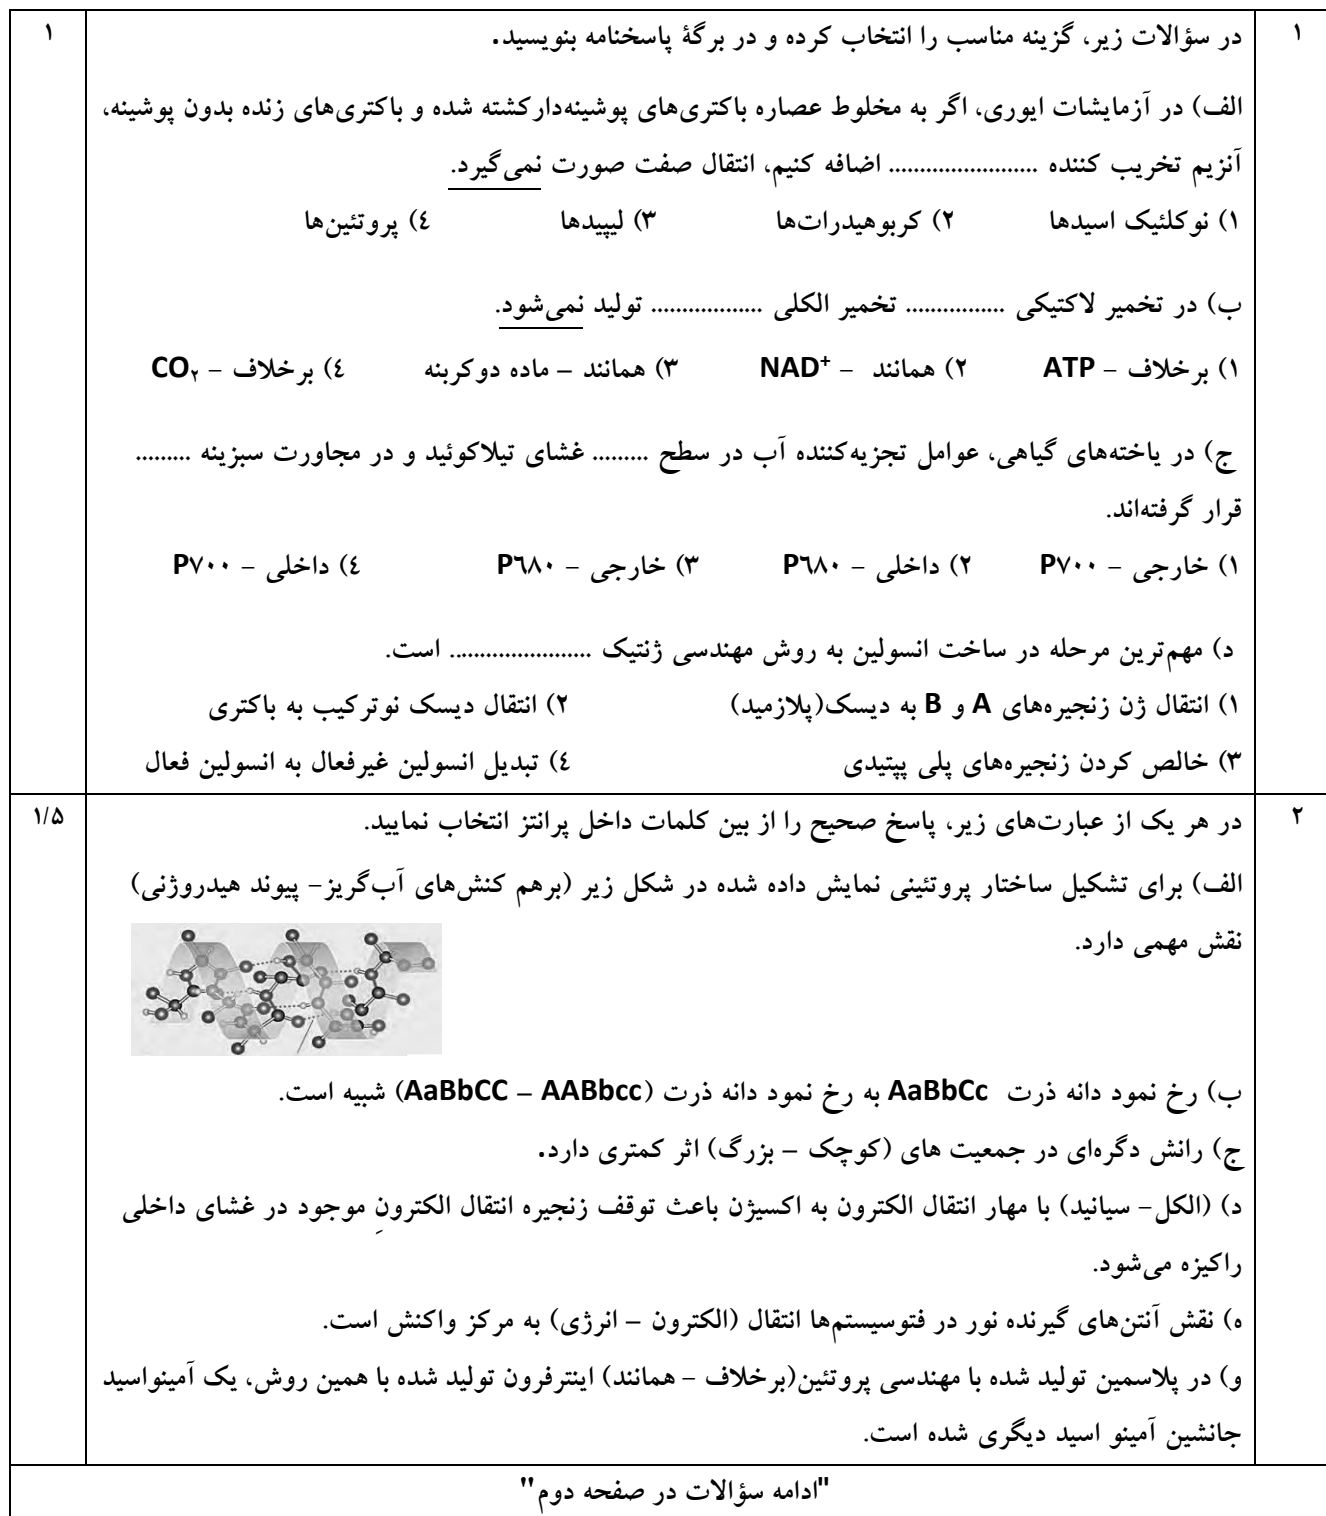 ۱ در سؤالات زیر، گزینه مناسب را انتخاب کرده و در برگهٔ پاسخنامه بنویسید. ۱
الف) در آزمایشات ایوری، اگر به مخلوط عصاره باکتری‌های پوشینه‌دارکشته شده و باکتری‌های زنده بدون پوشینه،
آنزیم تخریب کننده ........................ اضافه کنیم، انتقال صفت صورت نمی‌گیرد.
۱) نوکلئیک اسیدها ۲) کربوهیدرات‌ها ۳) لیپیدها ٤) پروتئین‌ها
ب) در تخمیر لاکتیکی ................ تخمیر الکلی .................. تولید نمی‌شود.
۱) برخلاف – ATP ۲) همانند – NAD+ ۳) همانند – ماده دوکربنه ٤) برخلاف – CO۲
ج) در یاخته‌های گیاهی، عوامل تجزیه‌کننده آب در سطح ......... غشای تیلاکوئید و در مجاورت سبزینه .........
قرار گرفته‌اند.
۱) خارجی – P۷۰۰ ۲) داخلی – P٦٨۰ ۳) خارجی – P٦٨۰ ٤) داخلی – P۷۰۰
د) مهم‌ترین مرحله در ساخت انسولین به روش مهندسی ژنتیک ....................... است.
۱) انتقال ژن زنجیره‌های A و B به دیسک(پلازمید) ۲) انتقال دیسک نوترکیب به باکتری
۳) خالص کردن زنجیره‌های پلی پپتیدی ٤) تبدیل انسولین غیرفعال به انسولین فعال
۲ در هر یک از عبارت‌های زیر، پاسخ صحیح را از بین کلمات داخل پرانتز انتخاب نمایید. ۱/۵
الف) برای تشکیل ساختار پروتئینی نمایش داده شده در شکل زیر (برهم کنش‌های آب‌گریز- پیوند هیدروژنی)
نقش مهمی دارد.
ب) رخ نمود دانه ذرت AaBbCc به رخ نمود دانه ذرت (AaBbCC – AABbcc) شبیه است.
ج) رانش دگره‌ای در جمعیت های (کوچک – بزرگ) اثر کمتری دارد.
د) (الکل- سیانید) با مهار انتقال الکترون به اکسیژن باعث توقف زنجیره انتقال الکترونِ موجود در غشای داخلی
راکیزه می‌شود.
ه) نقش آنتن‌های گیرنده نور در فتوسیستم‌ها انتقال (الکترون – انرژی) به مرکز واکنش است.
و) در پلاسمین تولید شده با مهندسی پروتئین(برخلاف – همانند) اینترفرون تولید شده با همین روش، یک آمینواسید
جانشین آمینو اسید دیگری شده است.
"ادامه سؤالات در صفحه دوم"